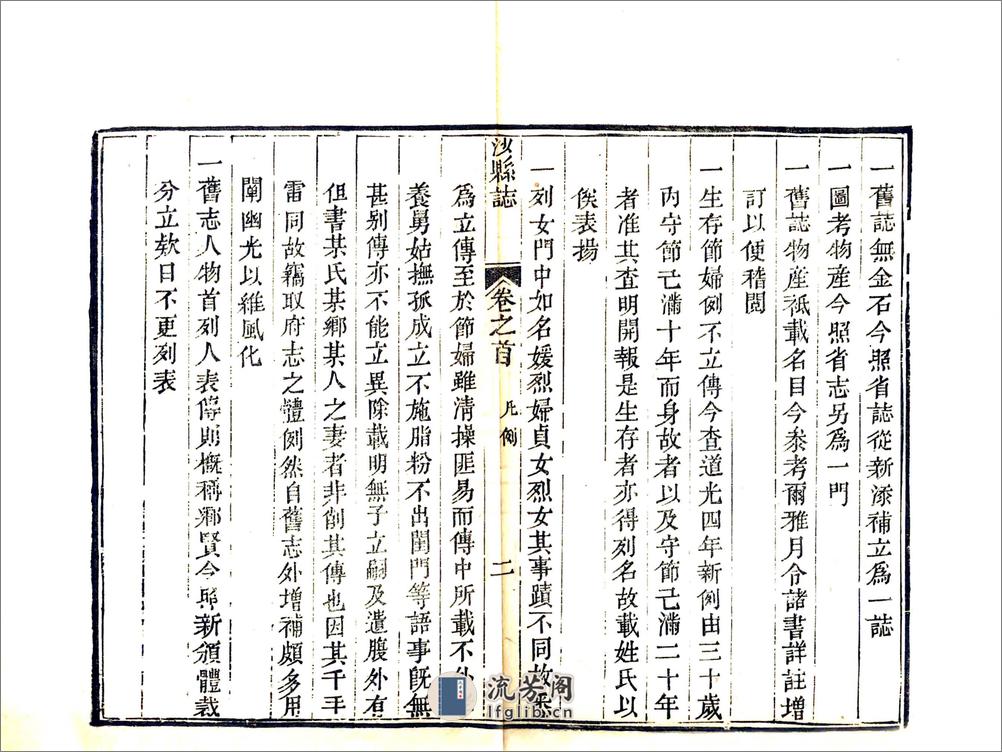 一舊誌無金石今照省誌從新添補立為一誌
一圖考物產今照省志另為一門
一舊誌物產祇載名目今叅考爾雅月令諸書詳註增
訂以便稽閱
一生存節婦例不立傳今查道光四年新例由三十歲
內守節已滿十年而身故者以及守節已滿二十年
者准其查明開報是生存者亦得列名故載姓氏以
俟表揚
一列女門中如名媛烈婦貞女烈女其事蹟不同故悉
沙縣誌 卷之首 凡例 二
為立傳至於節婦雖清操匪易而傳中所載不外
養舅姑撫孤成立不施脂粉不出閨門等語事既無
甚别傳亦不能立異除載明無子立嗣及遺腹外有
但書某氏某鄉某人之妻者非削其傳也因其千手
雷同故竊取府志之體例然自舊志外增補頗多用
闡幽光以維風化
一舊志人物首列人表傳則概稱鄉賢今照新頒體裁
分立欵目不更列表
流芳阁
lfglib.cn